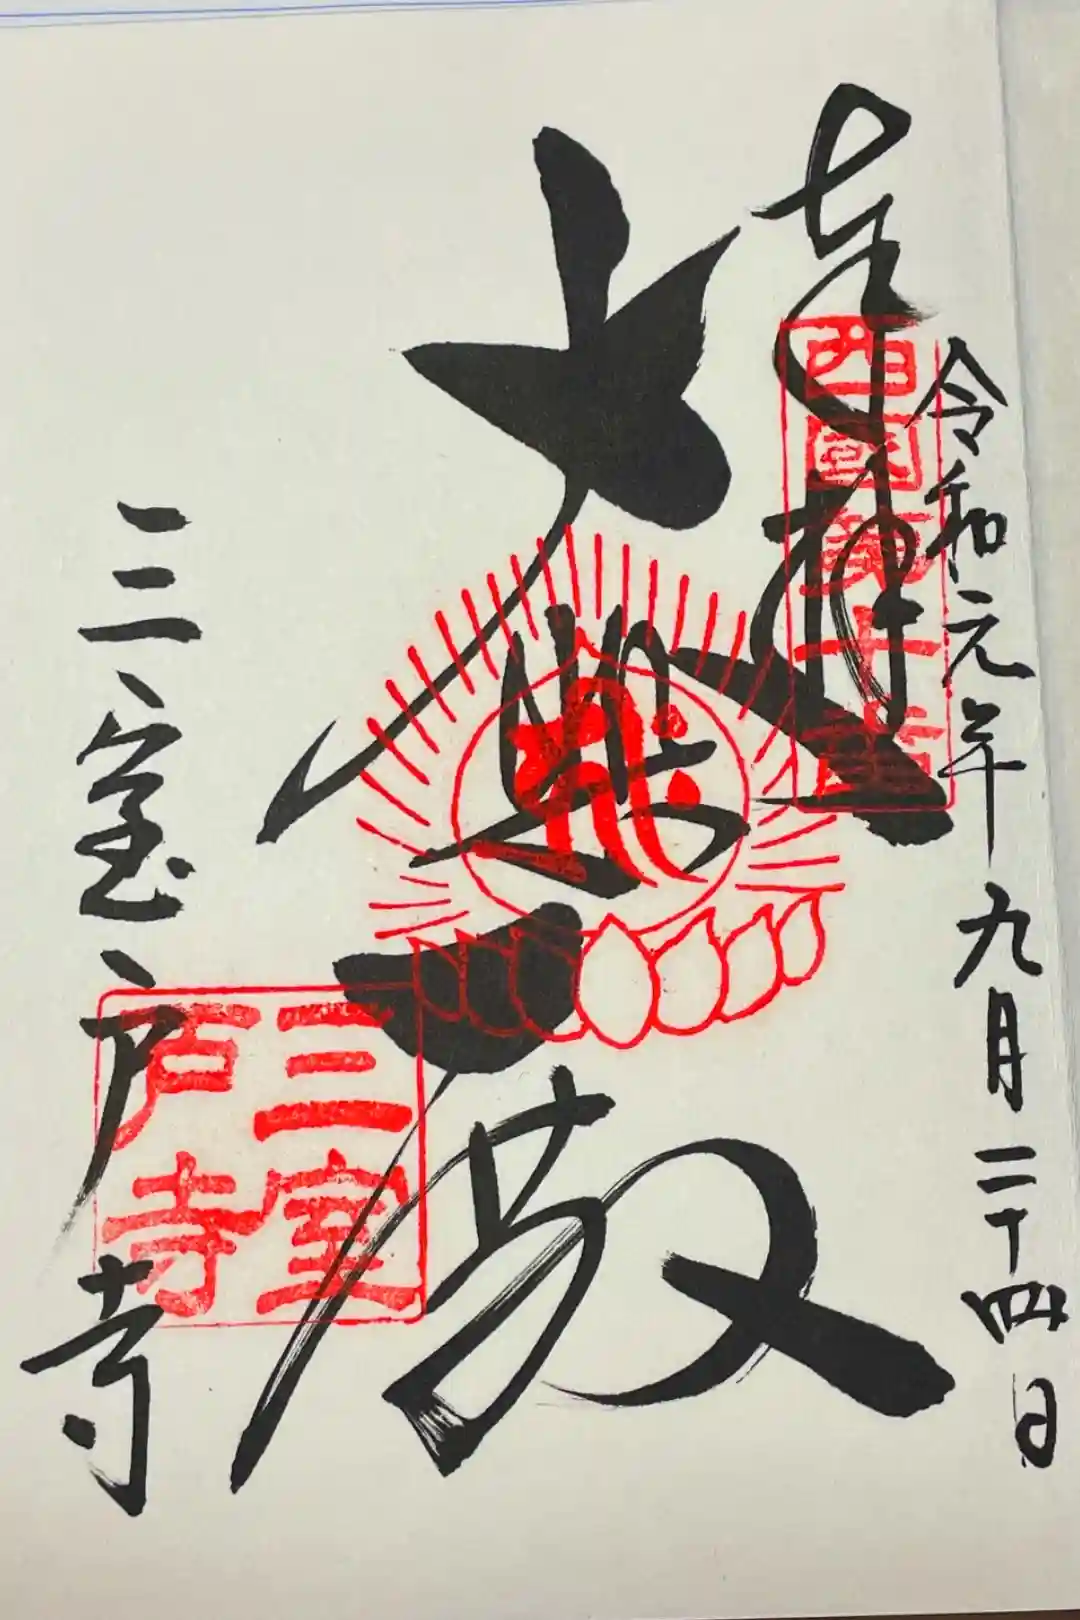 令和元年九月二十四日
奉拝
西國第十番
大悲殿
三室戸寺
三室戸寺